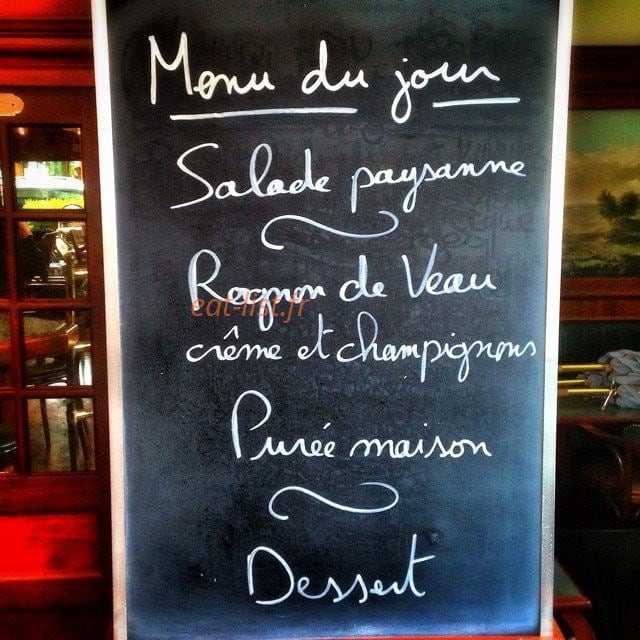 Menu du jour
Salade paysanne
Rognon de Veau
eat-list.fr
crême et champignons
Purée maison
Dessert